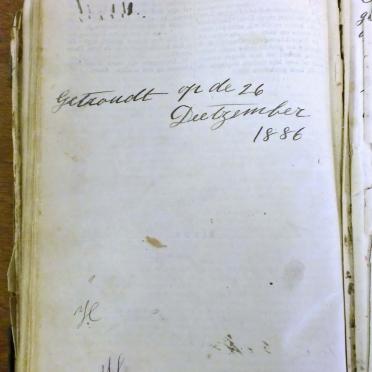 Getroudt op de 26
Dietzember
1886